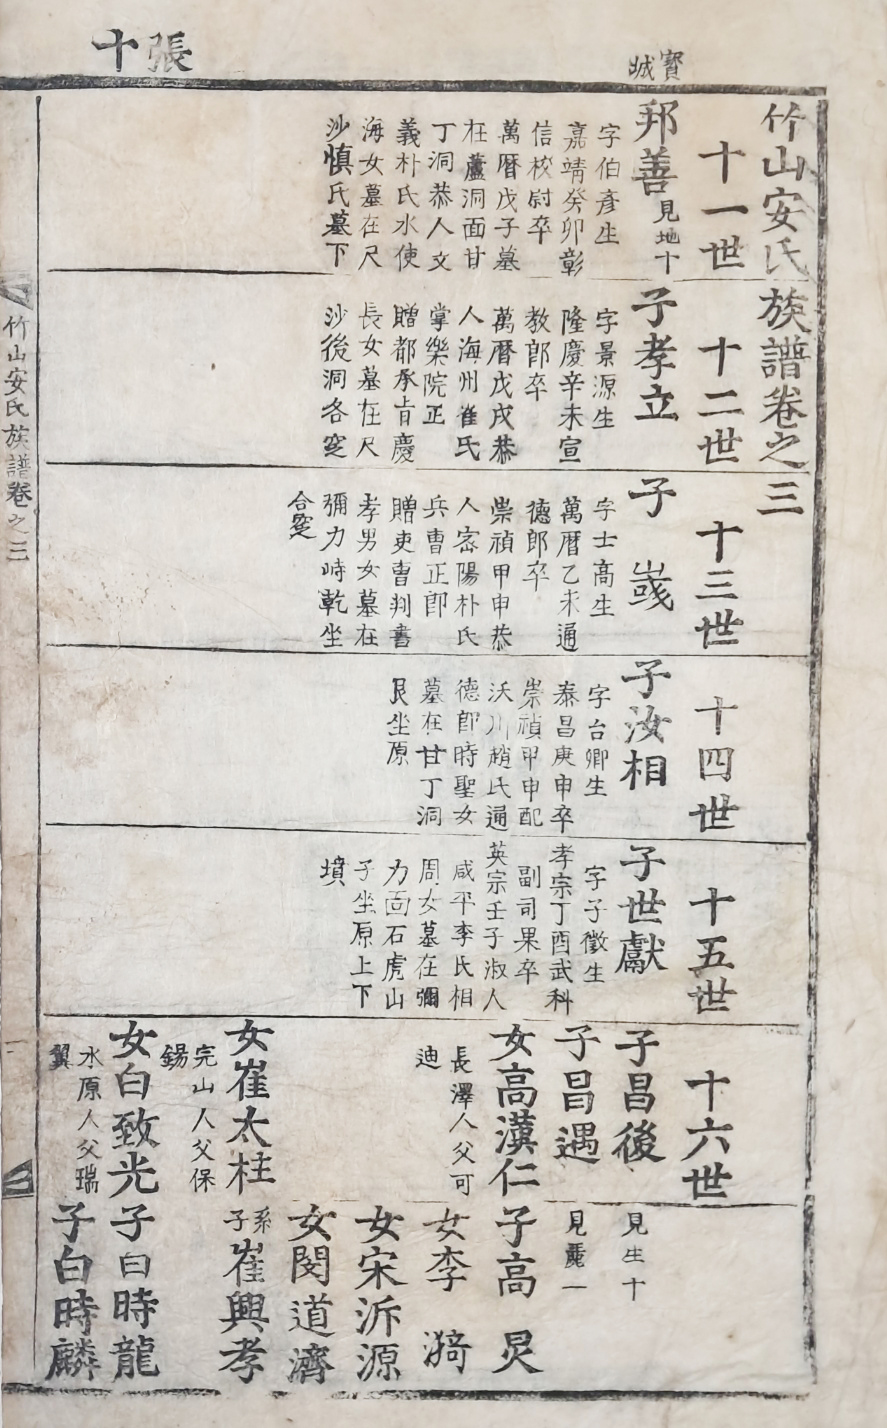 張十
寶城
竹山安氏族譜卷之三
十一世
邦善見地十
字伯彥生
嘉靖癸卯彰
信校尉卒
萬曆戊子墓
在蘆洞面甘
丁洞恭人文
義朴氏水使
海女墓在尺
沙愼氏墓下
十二世
子孝立
字景源生
隆慶辛未宣
教郎卒
萬曆戊戌恭
人海州崔氏
掌樂院正
贈都承旨慶
長女墓在尺
沙後洞各窆
十三世
子
字士高生
萬曆乙未通
德郎卒
崇禎甲申恭
人密陽朴氏
兵曹正郎
贈吏曹判書
孝男女墓在
彌力峙乾坐
合窆
十四世
子汝相
字台卿生
泰昌庚申卒
崇禎甲申配
沃川趙氏通
德郎時聖女
墓在甘丁洞
艮坐原
十五世
子世獻
字子徵生
孝宗丁酉武科
副司果卒
英宗壬子淑人
咸平李氏相
周女墓在彌
力面石虎山
子坐原上下
墳
十六世
子昌後
見生十
子昌遇
見麗一
女高漢仁
長澤人父可
迪
子高炅
女李漪
女宋沂源
女閔道濟
女崔太柱
完山人父保
錫
系子崔興孝
女白致光
水原人父瑞
翼
子白時龍
子白時麟
竹山安氏族譜卷之三